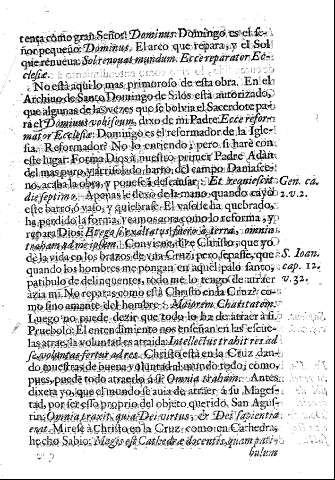 tenta como gran Señor: Dominus: Domingo, es el se-
ñor pequeño: Dominus. El arco que repara, y el Sol
que renueua: Sol renouat mundum. Ecce reparator Ec-
clesiæ.
No està aqui lo mas primoroso de esta obra. En el
Archiuo de Santo Domingo de Silos està autorizado,
que algunas de las vezes que se bolvia el Sacerdote pa-
rà el Dominus vobiscum, dixo de mi Padre: Ecce refor-
mator Ecclesiæ: Domingo es el reformador de la Igle-
sia. Reformador? No lo entiendo; pero si harè con
este lugar: Forma Dios à nuestro primer Padre Adàn
del mas puro, y arrisolado barro, del campo Damasce-
no, acaba la obra, y ponese à descansar: Et requieuit
die septimo. Apenas le dexo de la mano, quando cayò
este barro, ò vaso, y quiebrase. El vaso se ha quebrado,
ha perdido la forma, veamos aora como lo reforma, y
repara Dios: Et ego si exaltatus fuero à terra, omnia
traham ad me ipsum. Convieno, dize Christo, que yo
dè la vida en los brazos de vna Cruz; pero, sepasse, que
quando los hombres me pongan en aquel palo santo,
patibulo de delinquentes, todo me lo tengo de atraer
azia mi. No reparas como està Christo en la Cruz? co-
mo fino amante del hombre: Maiorem Charitatem.
Luego no puede dezir que todo lo ha de atraer à si.
Pruebolo: El entendimiento nos enseñan en las escue-
las atrae, la voluntad es atraida: Intellectus trahit res ad
se, voluntas fertur ad res. Christo està en la Cruz, dan-
do muestras de buena voluntad al mundo todo; como,
pues, puede todo atraerlo à si: Omnia traham. Antes
dixera yo, que el mundo se auia de atraer à su Mages-
tad, por ser esso proprio del objeto querido. San Agus-
tin: Omnia traxit, quia Dei virtus, & Dei sapientia
erat. Mirese à Christo en la Cruz, como en Cathedra,
hecho Sabio: Magis est Cathedra docentis, quam pati-
bulum
Gen. ca.
2. v. 2.
S. Ioan.
cap. 12.
v. 32.